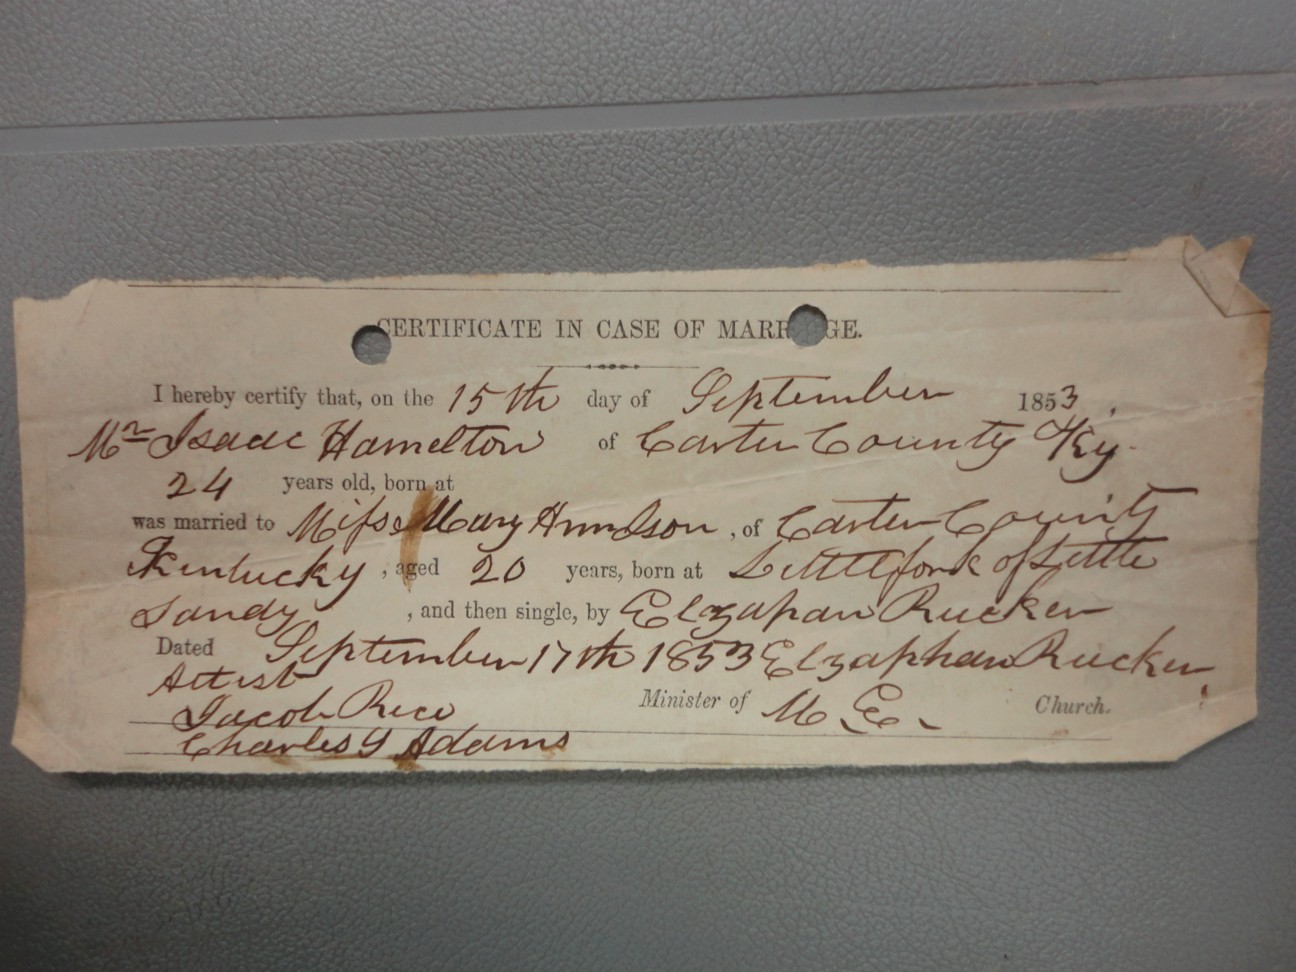 CERTIFICATE IN CASE OF MARR GE.
I hereby certify that, on the 15th day of September 1853,
Mr Isaac Hamelton of Carter County Ky.
24 years old, born at
was married to Miss Mary , of Carter County
Kentucky , aged 20 years, born at Littlefork of Little
Sandy , and then single, by Elzapan Rucker
Dated September 17th 1853 Elzaphan Rucker
Attest
Minister of M. E. Church.
Jacob Rice
Charles Y Adams